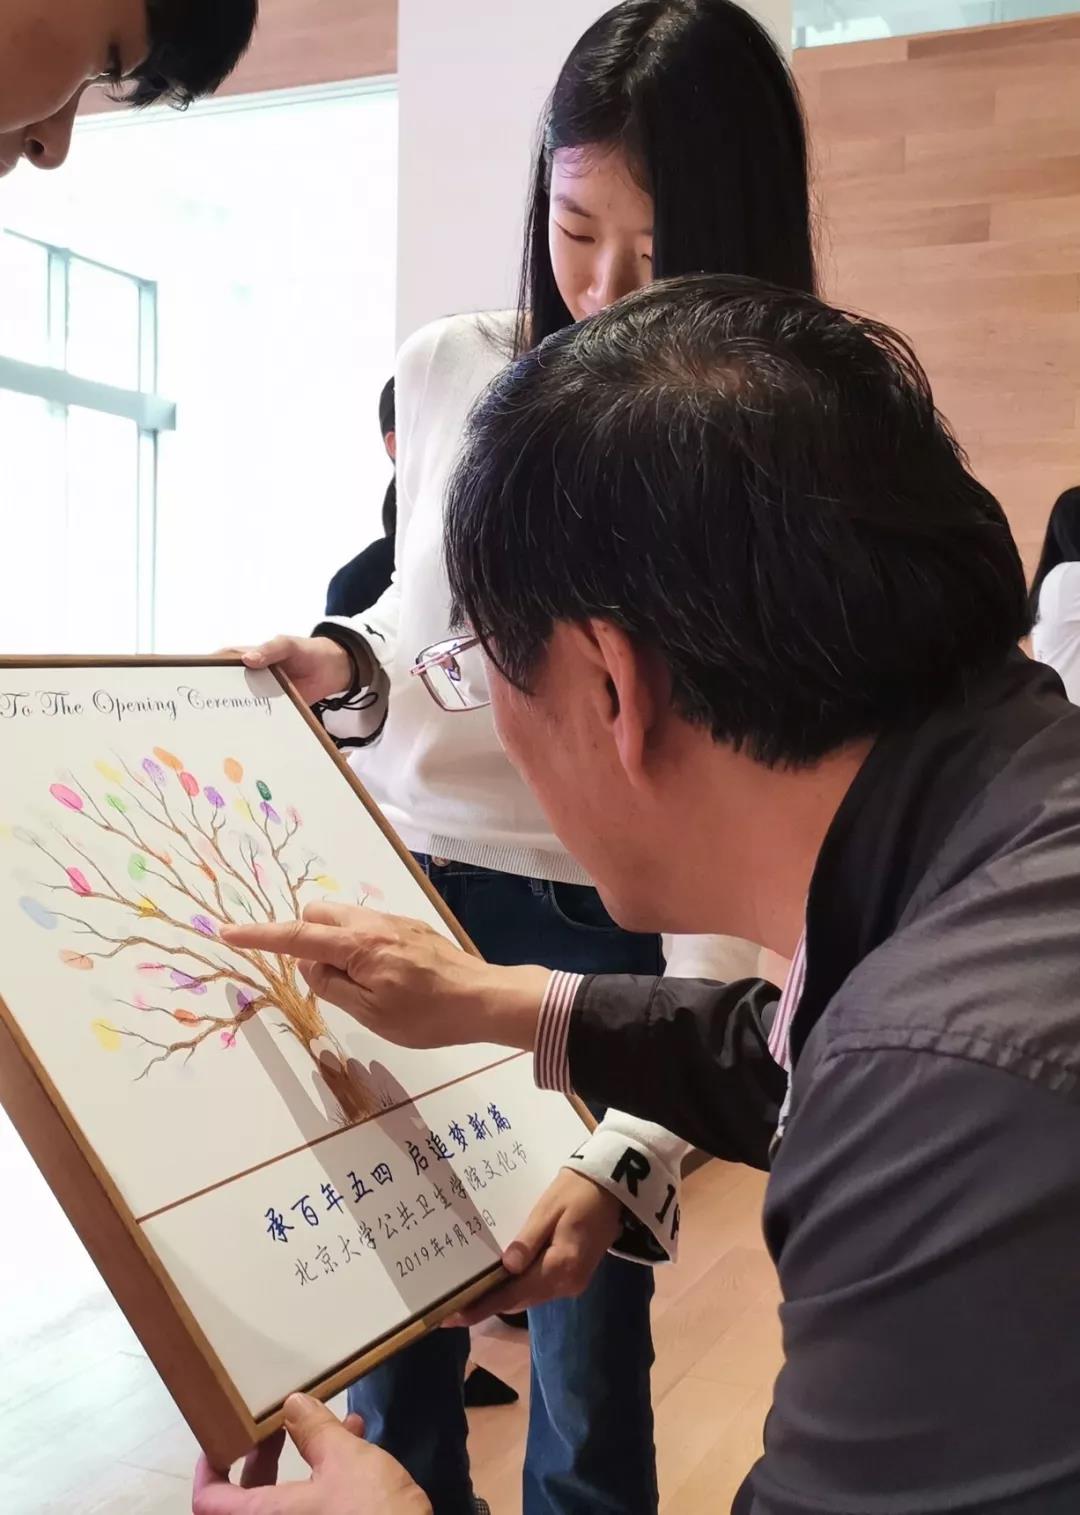 To The Opening Ceremony
承百年五四 启追梦新篇
北京大学公共卫生学院文化节
2019年4月23日